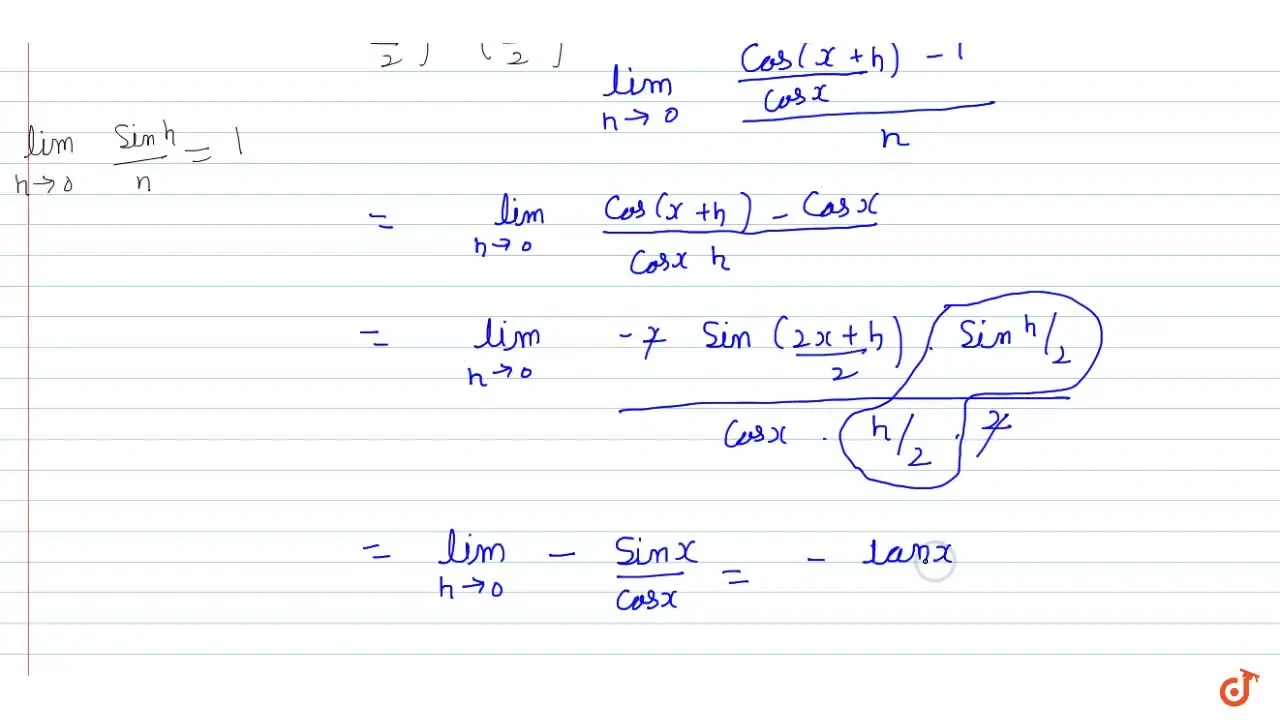 2 ) ( 2 )
lim h→0 (cos(x+h)/cosx − 1)/h
lim h→0 sinh/h = 1
= lim h→0 (cos(x+h) − cosx)/(cosx h)
= lim h→0 (−2 sin((2x+h)/2) . sin h/2)/(cosx . h/2 . 2)
= lim h→0 − sinx/cosx = − tanx